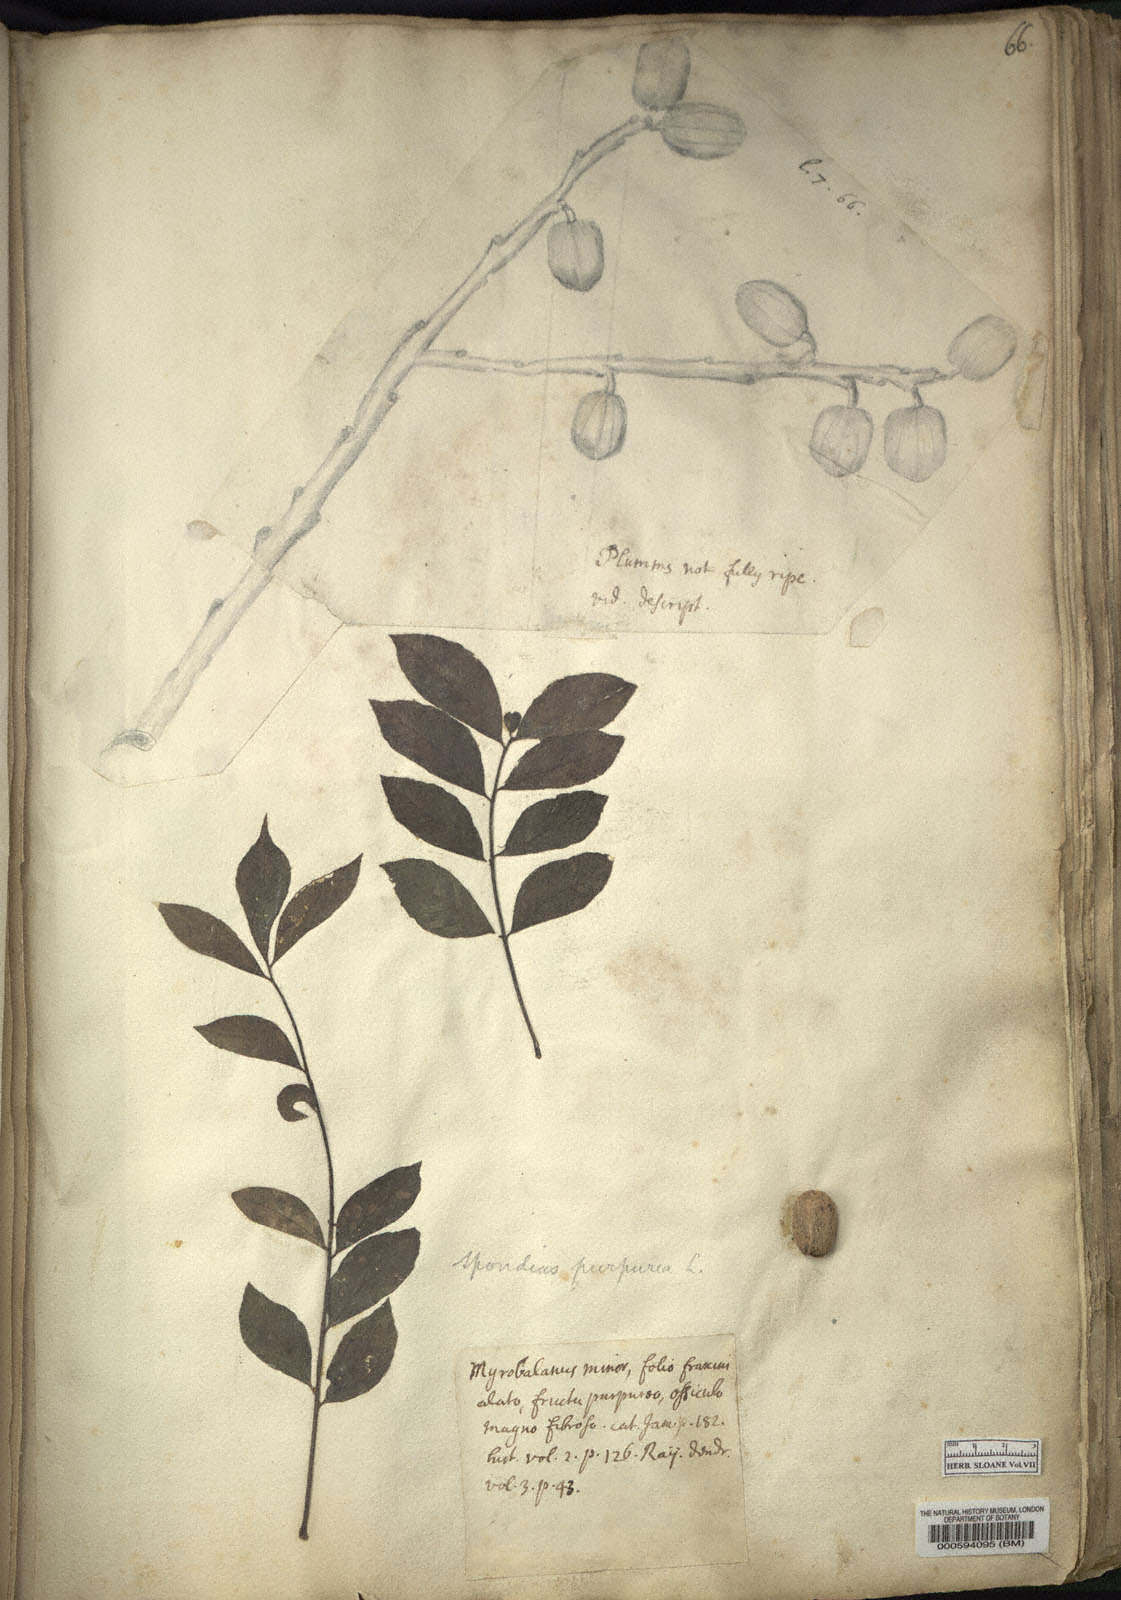 66.
l. 7. 66.
Plumms not fully ripe.
vid. descript.
Spondias purpurea L.
Myrobalanus minor, folio fraxini
alato, fructu purpureo, officulo
magno fibroso. cat. Jam. p. 182.
hist. vol. 2. p. 126. Raij. dendr.
vol. 3. p. 43.
HERB. SLOANE Vol. VII
THE NATURAL HISTORY MUSEUM, LONDON
DEPARTMENT OF BOTANY
000594095 (BM)